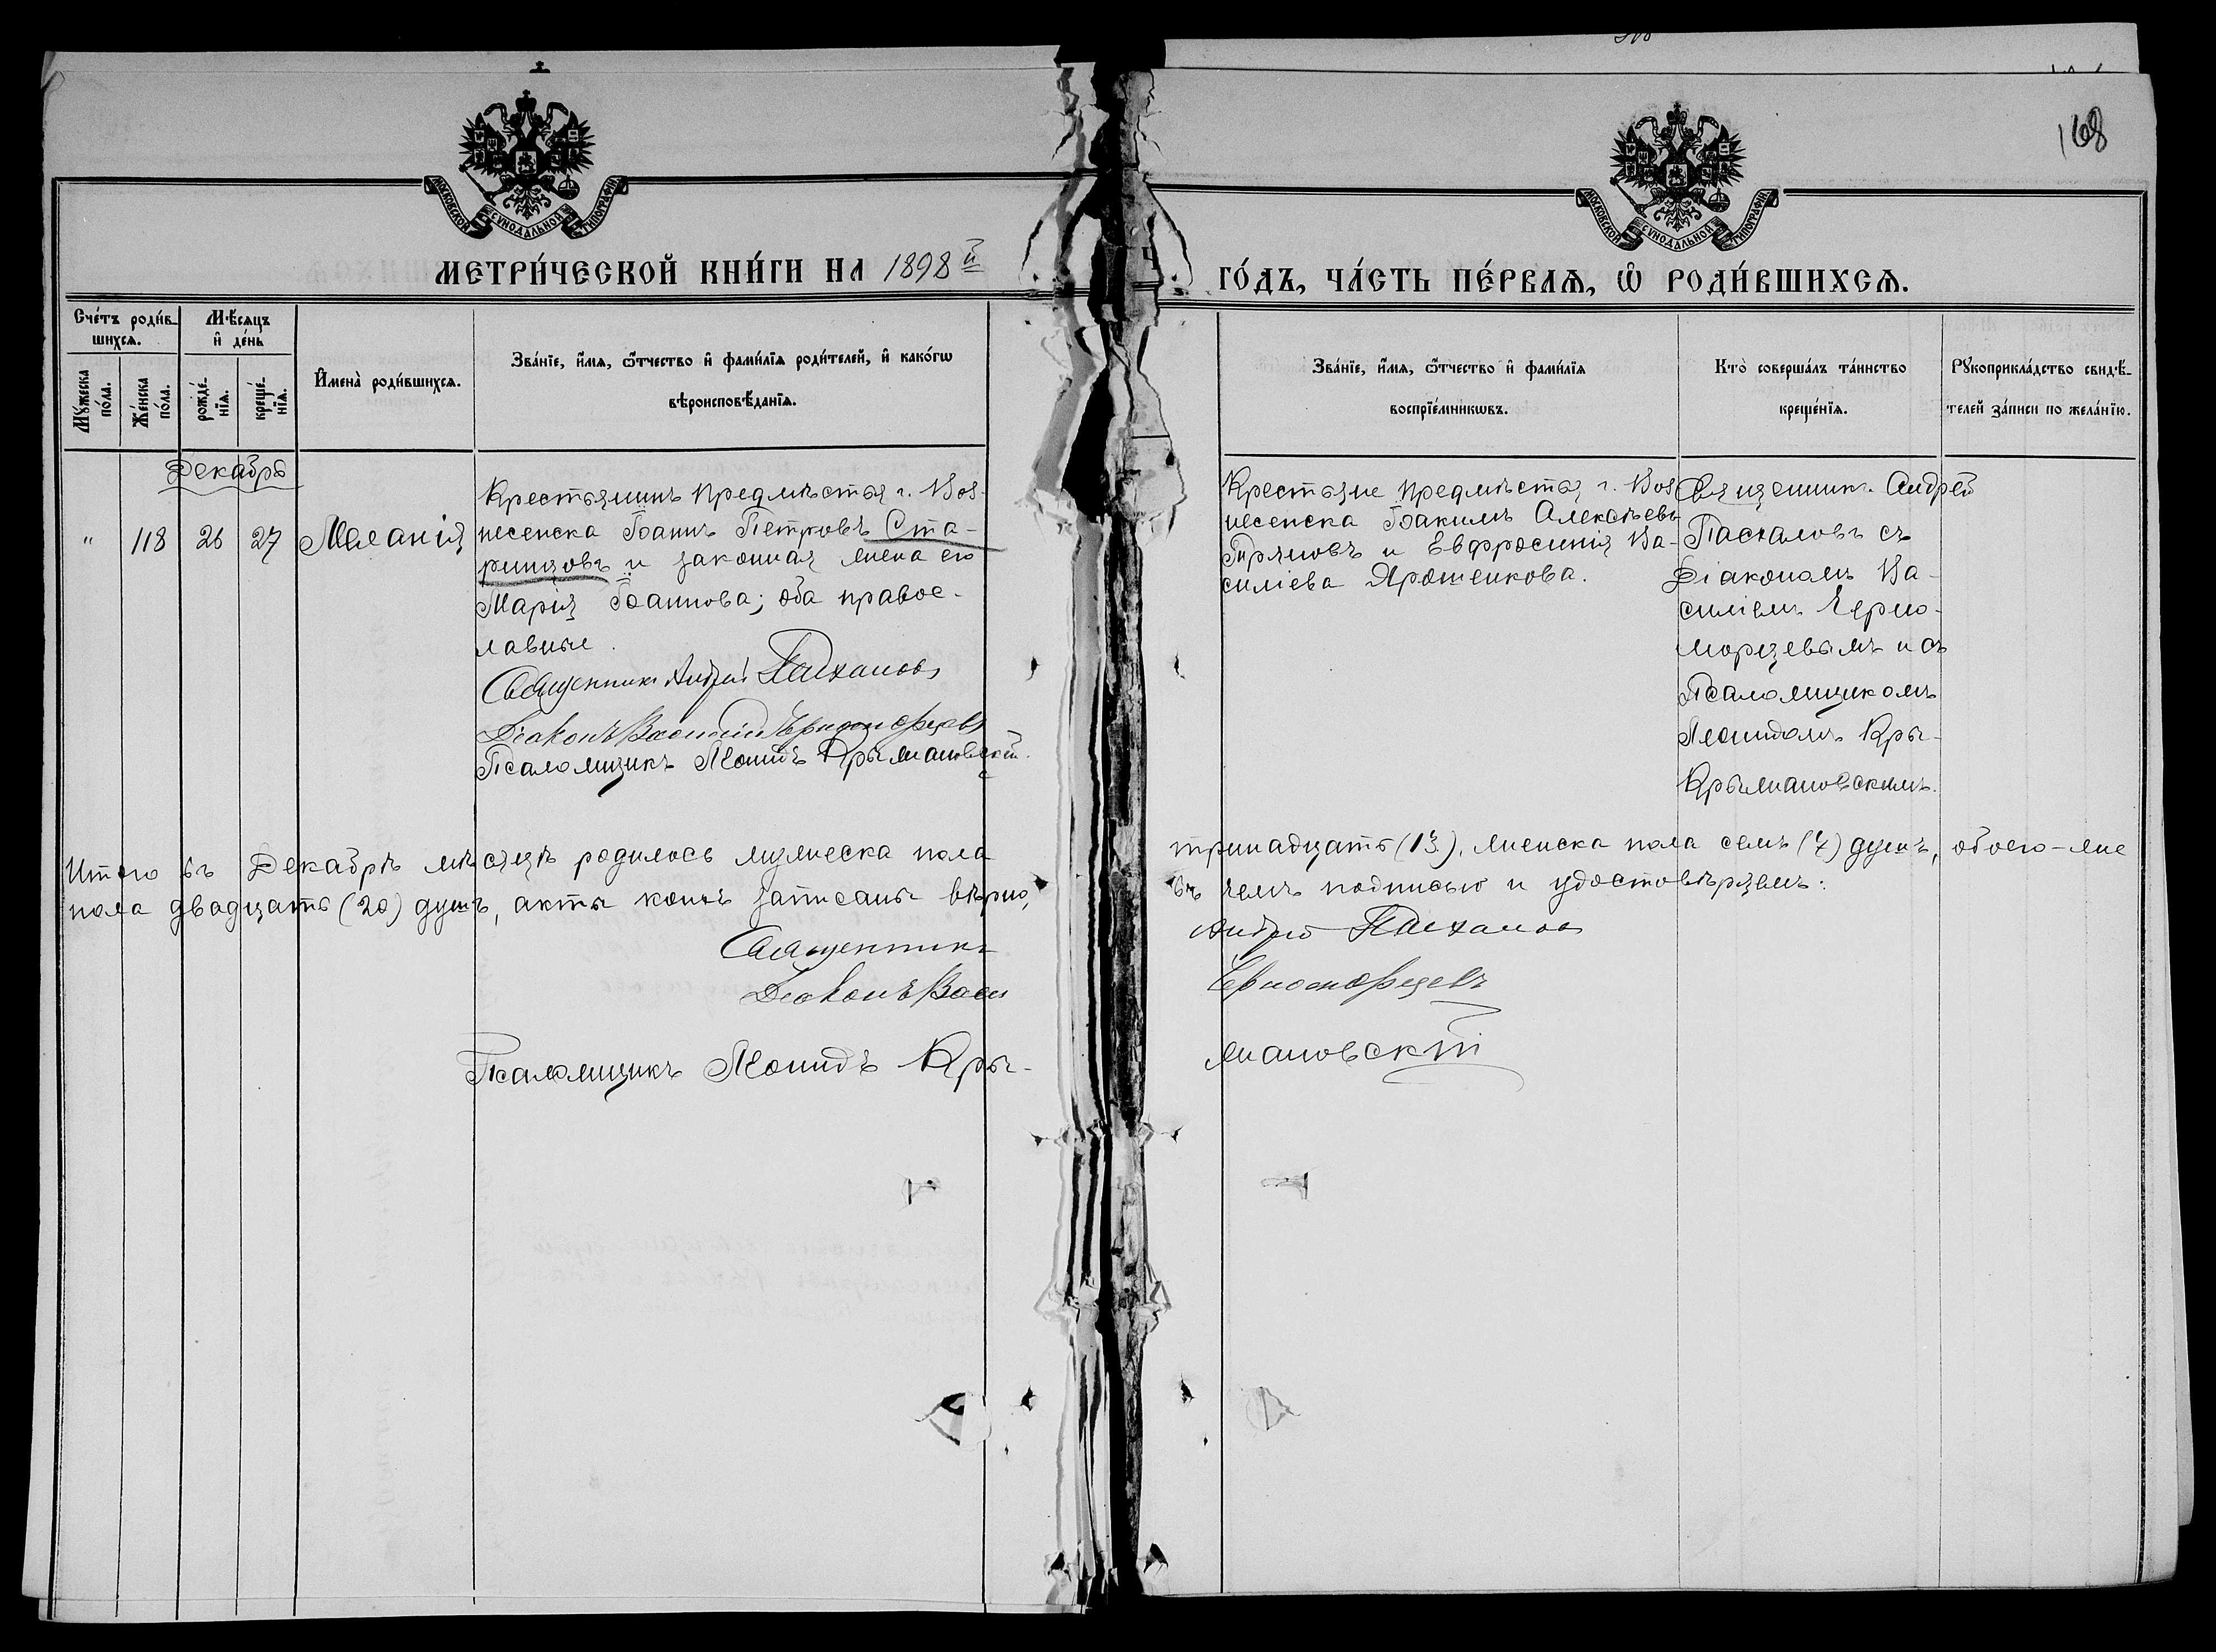 168
МОСКОВСКОЙ СѴНОДАЛЬНОЙ ТИПОГРАФІИ
МОСКОВСКОЙ СѴНОДАЛЬНОЙ ТИПОГРАФІИ
МЕТРИ́ЧЕСКОЙ КНИ́ГИ НА 1898й
ГО́ДЪ, ЧА́СТЬ ПЕ́РВАѦ, Ѽ РОДИ́ВШИХСѦ.
Сче́тъ роди́в-
шихсѧ.
Мꙋ́жеска по́ла.
Же́нска по́ла.
Мѣ́сѧцъ
и҆ де́нь
рожде́-
нїѧ.
креще́-
нїѧ.
И҆мена̀ роди́вшихсѧ.
Зва́нїе, и҆́мѧ, ѻ҆́тчество и҆ фами́лїѧ роди́телей, и҆ како́гѡ
вѣроисповѣ́данїѧ.
Зва́нїе, и҆́мѧ, ѻ҆́тчество и҆ фами́лїѧ
воспрїе́мникѡвъ.
Кто̀ соверша́лъ та́инство
креще́нїѧ.
Рꙋкоприкла́дство свидѣ́-
телей за́писи по жела́нїю.
Декабрь
" 118 26 27 Маланія
Крестьянинъ предмѣстья г. Воз-
несенска Іоаннъ Петровъ Ста-
ринцовъ и законная жена его
Марія Іоаннова; оба правос-
лавные.
Священникъ Андрей Пасхаловъ
Діаконъ Василій Черноморцевъ
Псаломщикъ Леонидъ Крыжановскій.
Крестьяне предмѣстья г. Воз-
несенска Іоакимъ Алексѣевъ
и Евфросинія Ва-
силіева Ярошенкова.
Священникъ Андрей
Пасхаловъ съ
Діакономъ Ва-
силіемъ Черно-
морцевымъ и съ
Псаломщикомъ
Леонидомъ Кры-
Крыжановскимъ.
Итого въ Декабрѣ мѣсяцѣ родилось мужеска пола тринадцать (13), женска пола семь (7) душъ, обоего-же
пола двадцать (20) душъ, акты коихъ записаны вѣрно, въ чемъ подписью и удостовѣряемъ:
Священникъ Андрей Пасхаловъ
Діаконъ Васи Черноморцевъ
Псаломщикъ Леонидъ Кры-жановскій